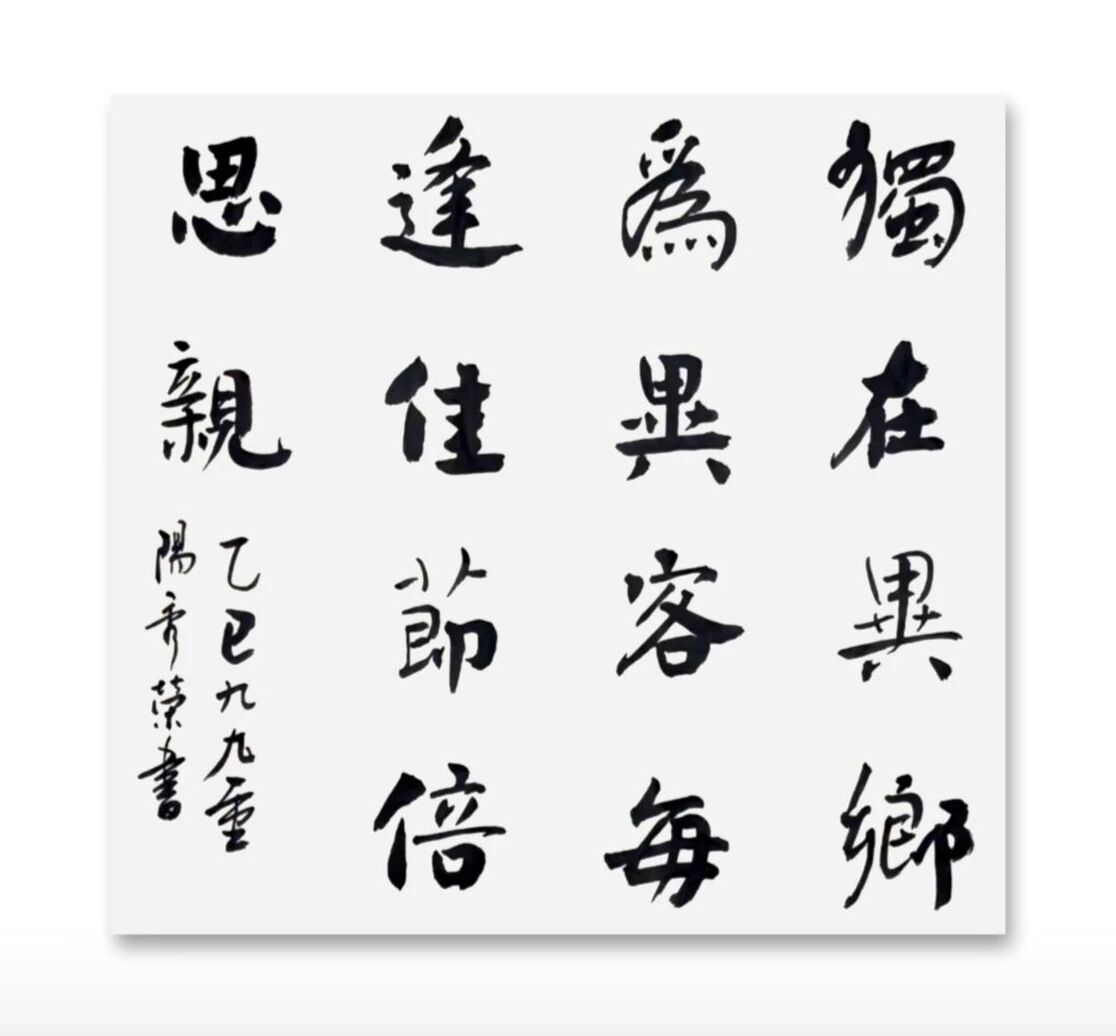 獨在異鄉
為異客每
逢佳節倍
思親
乙巳九九重
陽秀榮書